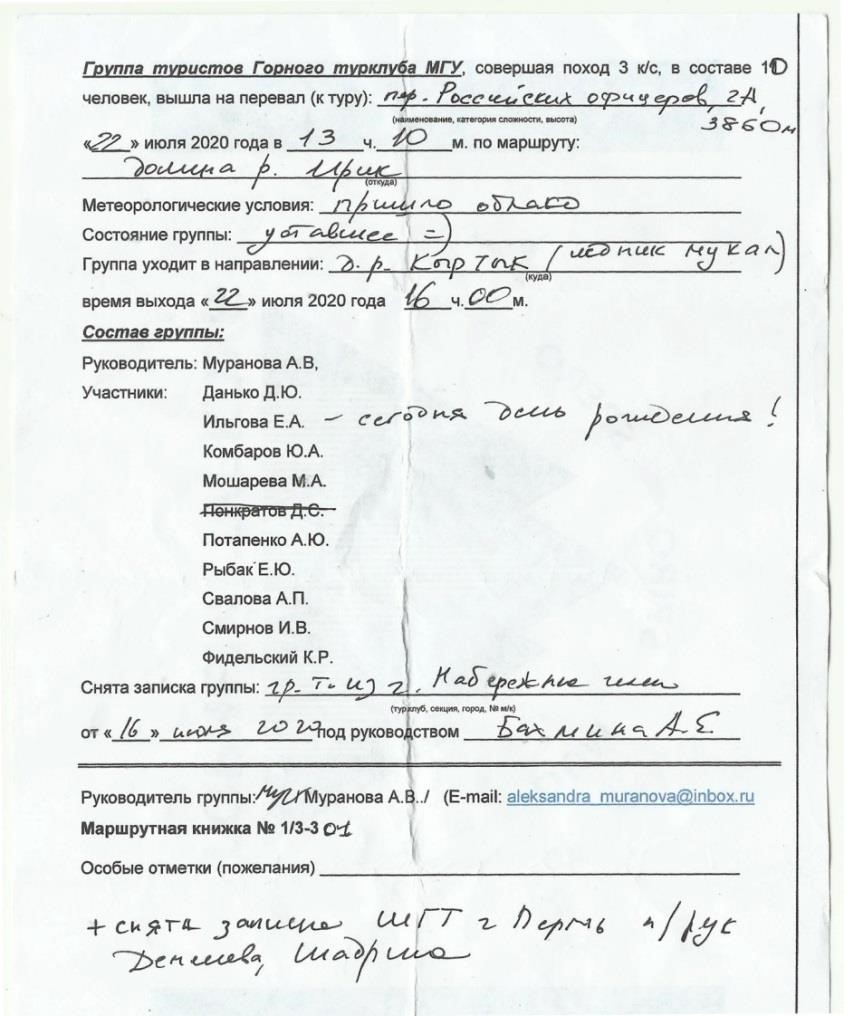 Группа туристов Горного турклуба МГУ, совершая поход 3 к/с, в составе 10
человек, вышла на перевал (к туру): пер. Российских офицеров, 2А,
(наименование, категория сложности, высота)
3860м
«22» июля 2020 года в 13 ч. 10 м. по маршруту:
долина р. Ирик
(откуда)
Метеорологические условия: пришло облако
Состояние группы: уставшее =)
Группа уходит в направлении: д.р. Кыртык (ледник Мукал)
(куда)
время выхода «22» июля 2020 года 16 ч. 00 м.
Состав группы:
Руководитель: Муранова А.В,
Участники: Данько Д.Ю.
Ильгова Е.А. – сегодня день рождения!
Комбаров Ю.А.
Мошарева М.А.
Понкратов Д.С.
Потапенко А.Ю.
Рыбак Е.Ю.
Свалова А.П.
Смирнов И.В.
Фидельский К.Р.
Снята записка группы: гр. т. из г. Набережные челны
(турклуб, секция, город, № м/к)
от «16» 2020 под руководством Бахмина А.Е.
Руководитель группы: Муранова А.В../ (E-mail: aleksandra_muranova@inbox.ru
Маршрутная книжка № 1/3-301
Особые отметки (пожелания)
+ снята записка г Пермь п/рук